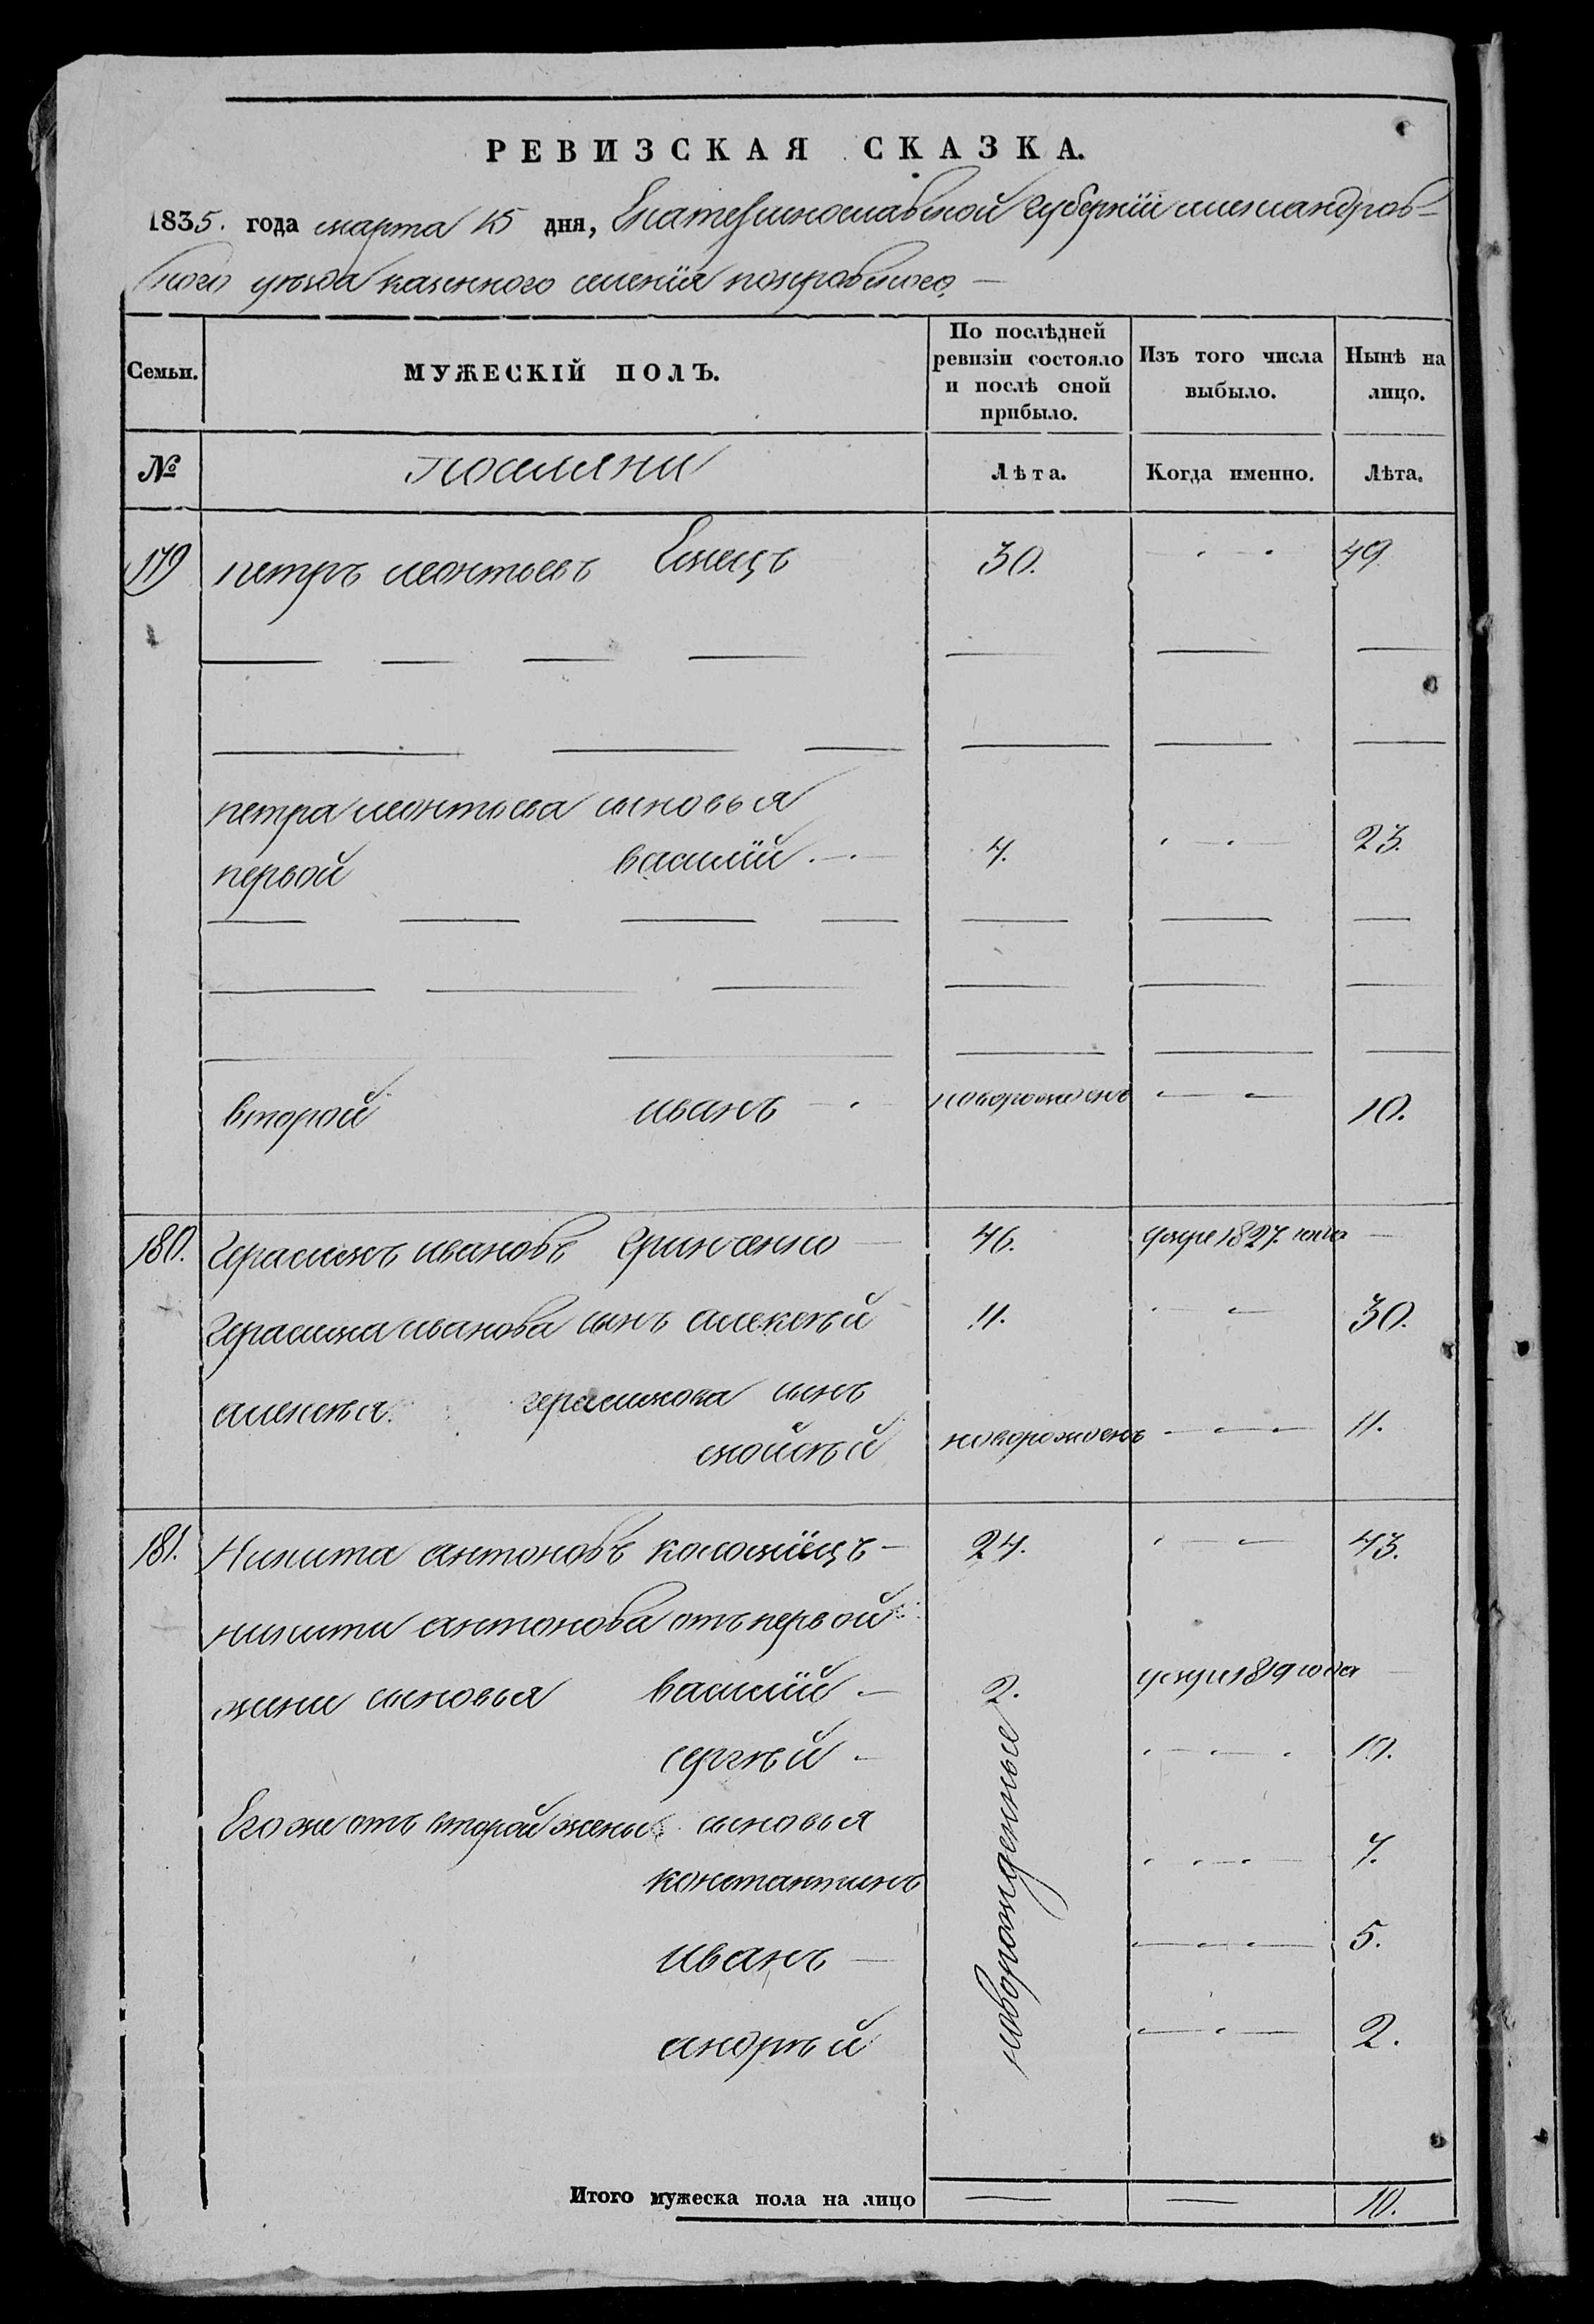 РЕВИЗСКАЯ СКАЗКА.
1835. года марта 15 дня, Екатеринославской губернїи александров-
ского уѣзда казенного селенїя покровского.
Семьи.
МУЖЕСКІЙ ПОЛЪ.
По послѣдней ревизіи состояло и послѣ оной прибыло.
Изъ того числа выбыло.
Нынѣ на лицо.
№
поселяни
Лѣта.
Когда именно.
Лѣта.
179 петръ леонтьевъ Емецъ 30. 49
петра леонтьева сыновья
первой василїй 4. 23.
второй иванъ новорожденъ 10.
180. Герасимъ ивановъ Гринченко 46. умре 1827. года
Герасима иванова сынъ алексѣй 11. 30.
алексѣя герасимова сынъ
мойсѣй новорожденъ 11.
181. Никита антоновъ коломїецъ 24. 43.
никити антонова отъ первой
жени сыновья василїй 2. умре 1819 года
сергѣй 10.
Его же отъ второй жены сыновья
константинъ новорожденные 7.
иванъ 5.
андрѣй 2.
Итого мужеска пола на лицо 10.